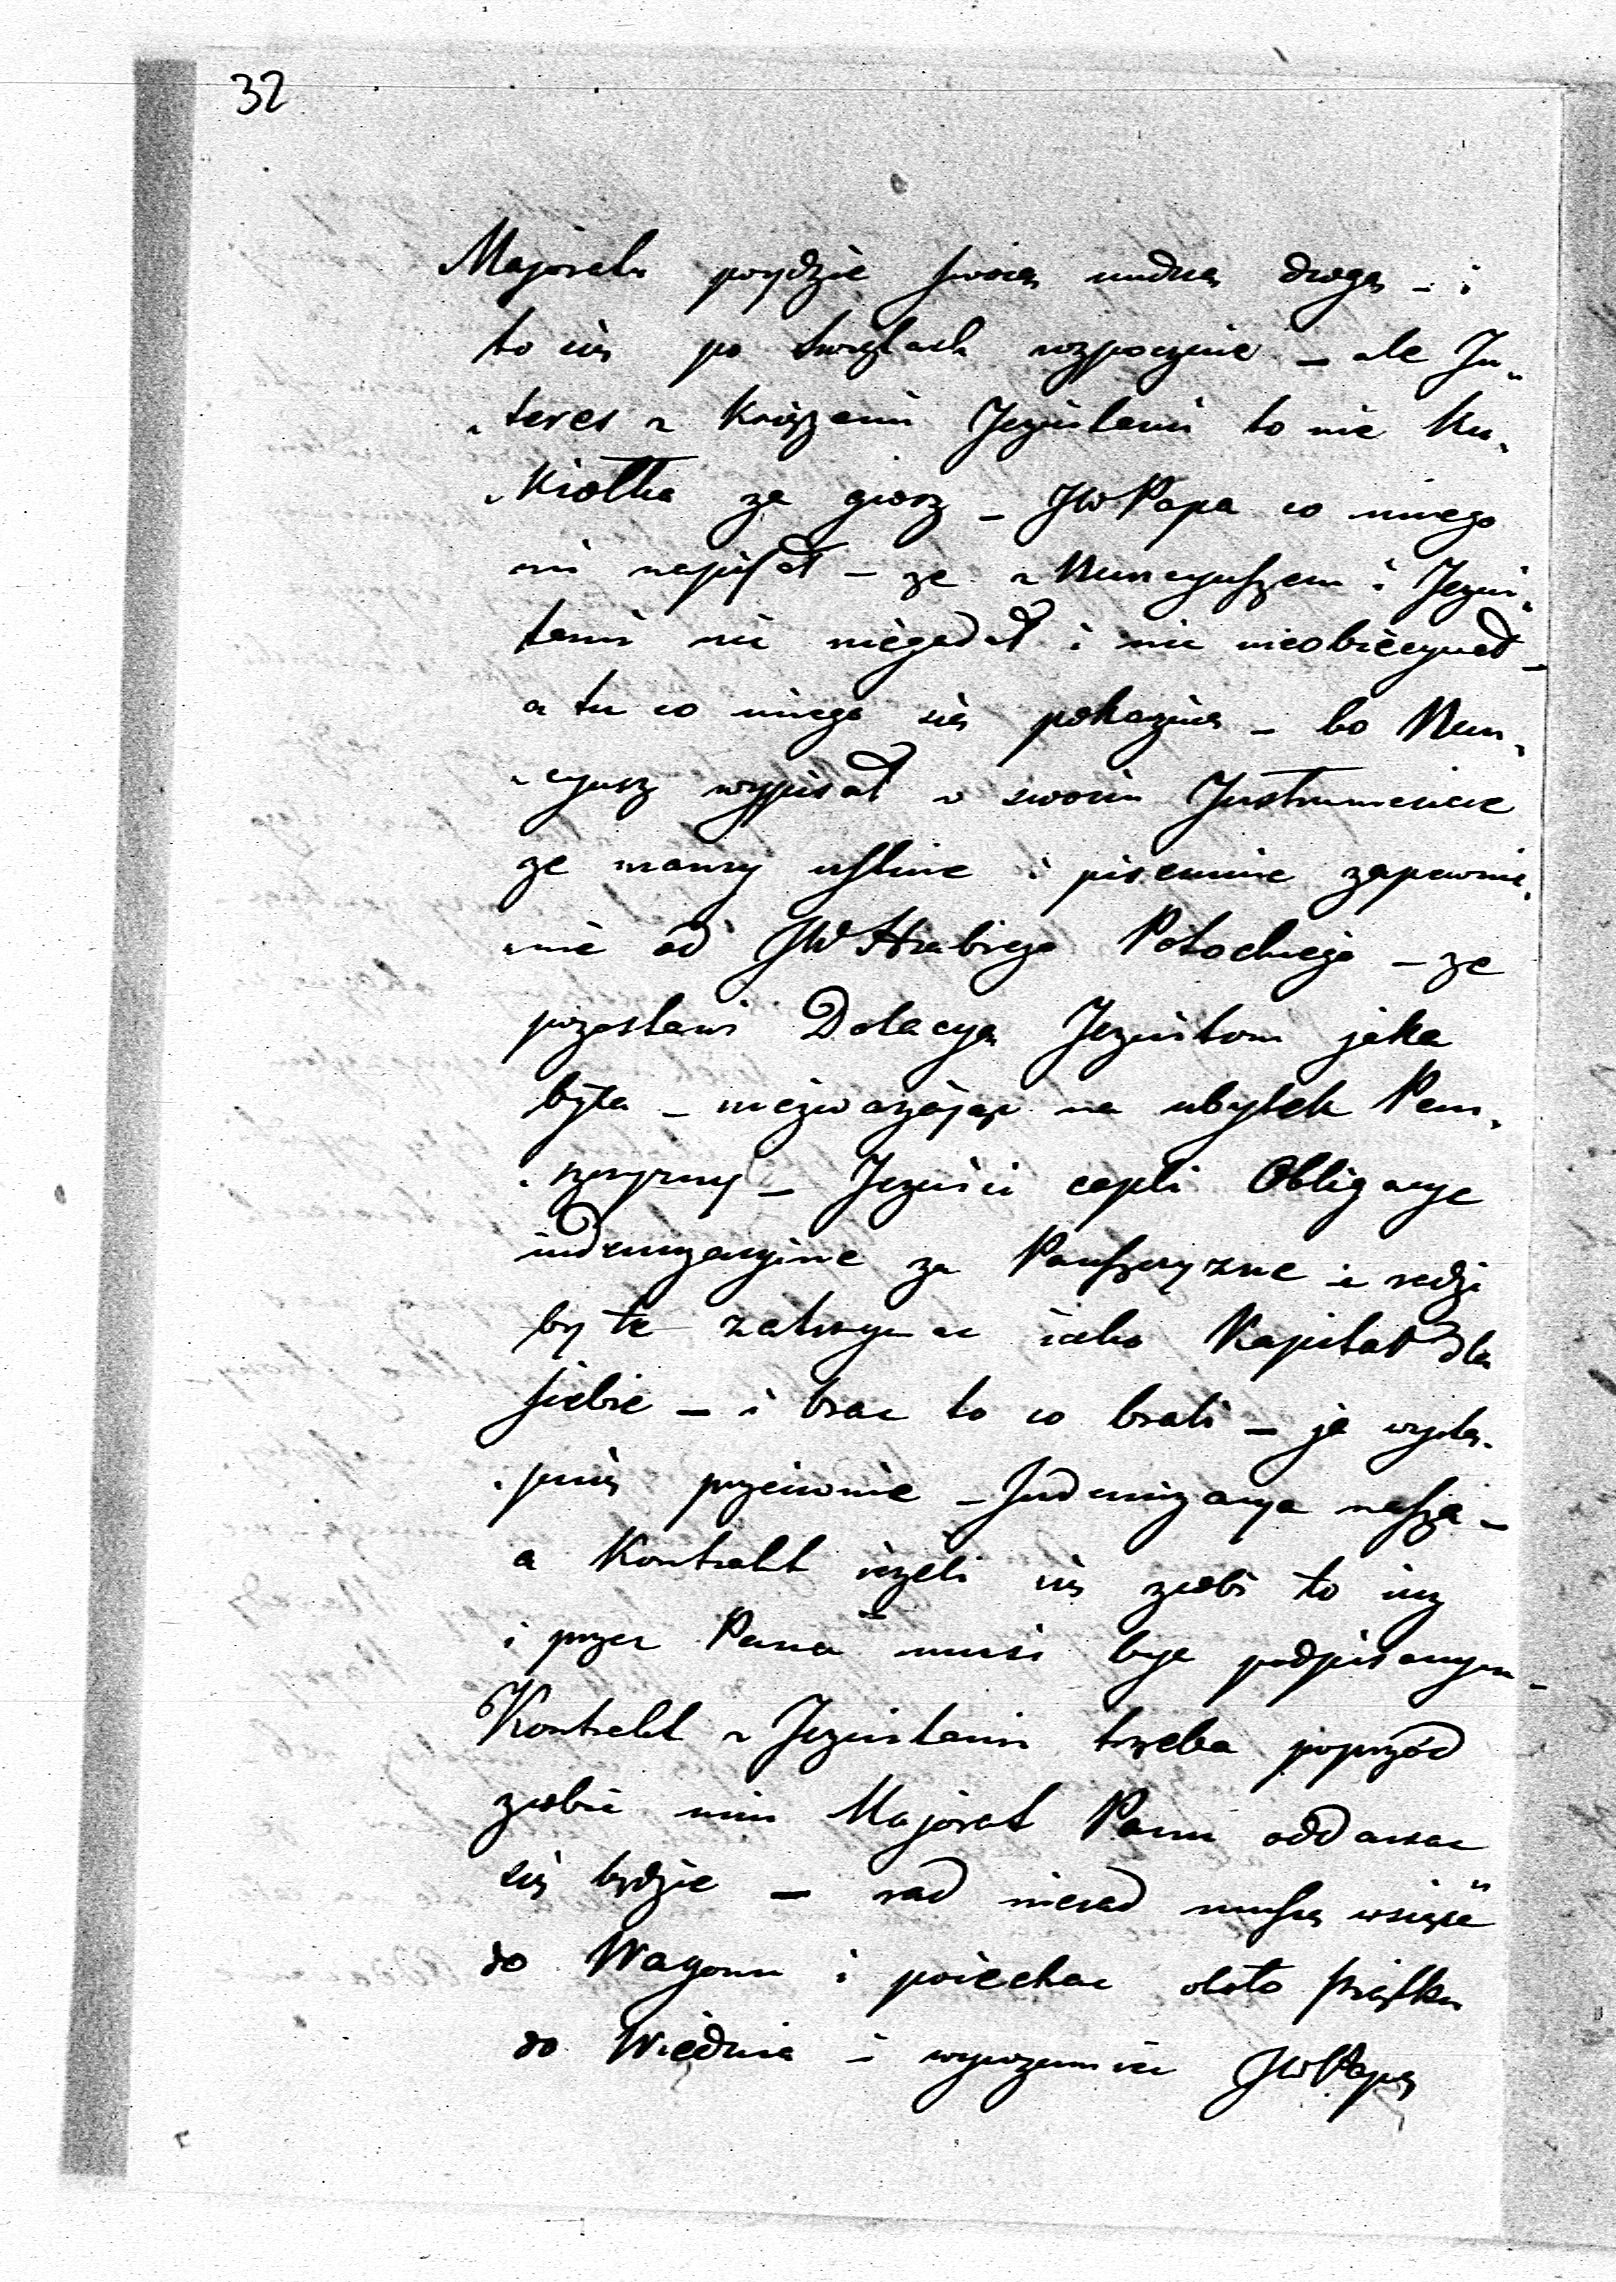 32
Majoratu poydzie swoią nudną drogą – i
to się po świętach rozpocznie – ale In„
„teres z Księżami Jezuitami to nie Ku„
„kiołka za grosz – JWPapa co innego
mi napisał – ze z Nuncyuszem i Jezui„
tami nic niegadał i nic nieobiecywał –
a tu co innego się pokazuie – bo Nun„
„cyusz wypisał w swoim Instrumencie
ze mamy ustne i pisemne zapewnie„
„nie od JWHrabiego Potockiego – ze
pozostawi Dotacyą Jezuitom jaka
była – niezwazając na ubytek Pan„
„szczyzny – Jezuici capli Obligacye
indemnizacyine za Panszczyzne i radzi
by te zatrzymac iako Kapitał dla
siebie – i brac to co brali – ja wystą„
„piłę przeciwnie – Indemnizacya nasza –
a Kontrakt iezeli się zrobi to iuz
i przez Pana musi byc podpisanym –
Kontrakt z Jezuitami trzeba poprzód
zrobic nim Majorat Panu oddawac
się będzie – rad nierad muszę wsiąść
do Wagonu i poiechac około piątku
do Wiednia i wyrozumiec JWPapę